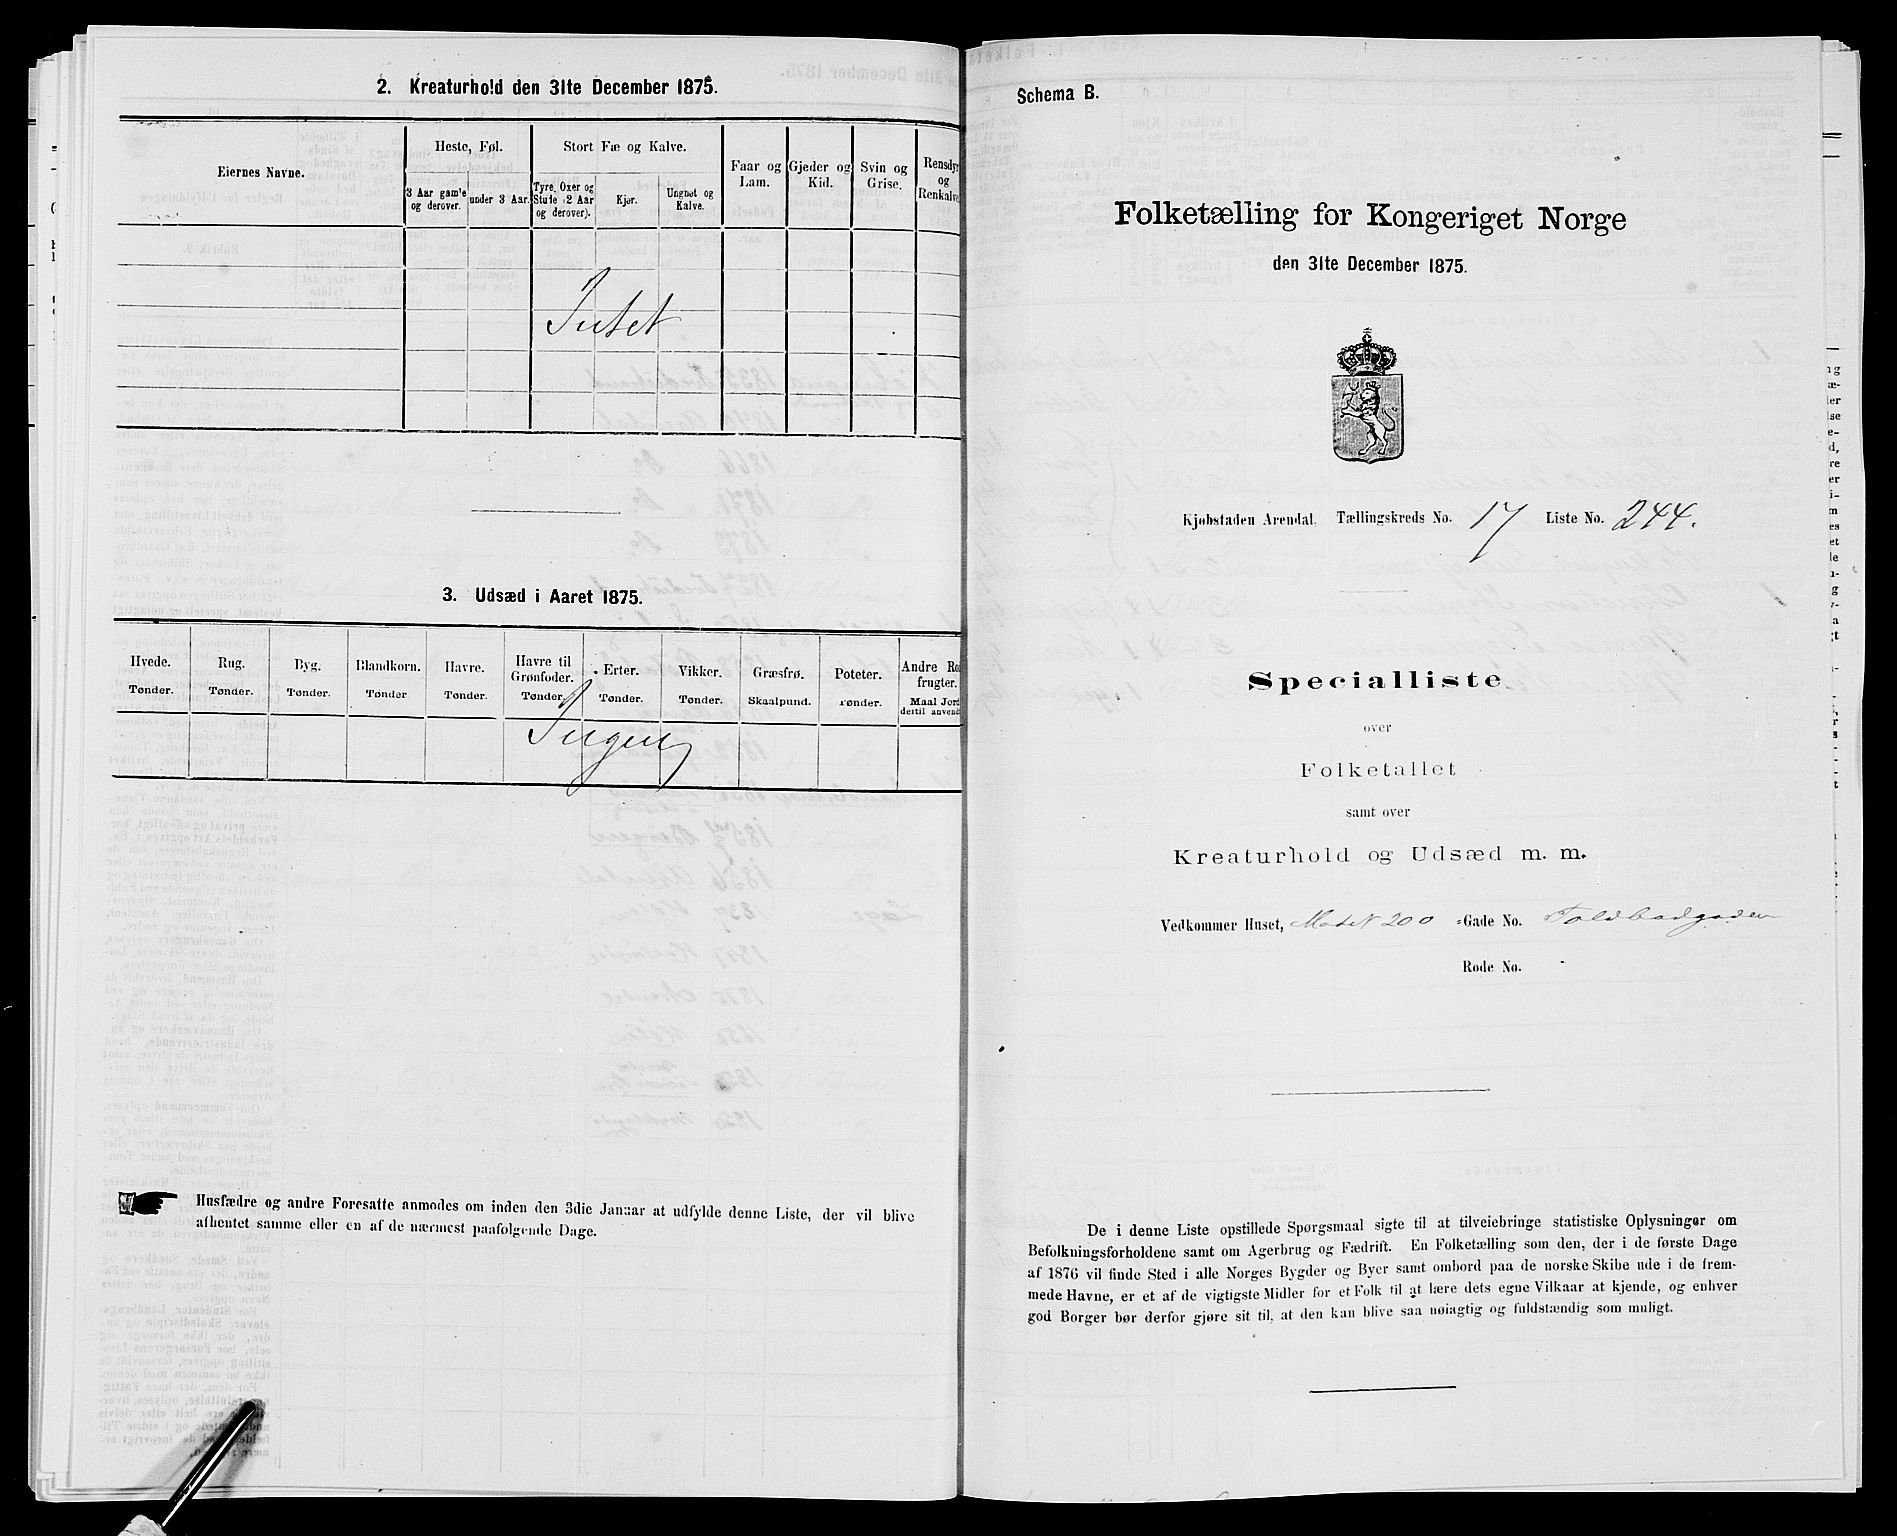 2. Kreaturhold den 31te December 1875.
Eiernes Navne.
Heste, Føl.
3 Aar gamle og derover.
under 3 Aar.
Stort Fæ og Kalve.
Tyre, Oxer og Stude (2 Aar og derover).
Kjør.
Ungnøt og Kalve.
Faar og Lam.
Gjeder og Kid.
Svin og Grise.
Rensdyr og Renkalve.
Intet
3. Udsæd i Aaret 1875.
Hvede. Tønder.
Rug. Tønder.
Byg. Tønder.
Blandkorn. Tønder
Havre. Tønder.
Havre til Grønfoder. Tønder.
Erter. Tønder.
Vikker. Tønder.
Græsfrø. Skaalpund.
Poteter. Tønder.
Andre Ro frugter. Maal Jord dertil anvendt
Ingen
Husfædre og andre Foresatte anmodes om inden den 3die Januar at udfylde denne Liste, der vil blive
afhentet samme eller en af de nærmest paafølgende Dage.
Schema B.
Folketælling for Kongeriget Norge
den 31te December 1875.
Kjøbstaden Arendal. Tællingskreds No. 17 Liste No. 244.
Specialliste
over
Folketallet
samt over
Kreaturhold og Udsæd m. m.
Vedkommer Huset, Mat N 200 -Gade No. Toldbodgaden
Rode No.
De i denne Liste opstillede Spørgsmaal sigte til at tilveiebringe statistiske Oplysninger om
Befolkningsforholdene samt om Agerbrug og Fædrift. En Folketælling som den, der i de første Dage
af 1876 vil finde Sted i alle Norges Bygder og Byer samt ombord paa de norske Skibe ude i de frem-
mede Havne, er et af de vigtigste Midler for et Folk til at lære dets egne Vilkaar at kjende, og enhver
god Borger bør derfor gjøre sit til, at den kan blive saa nøiagtig og fuldstændig som muligt.